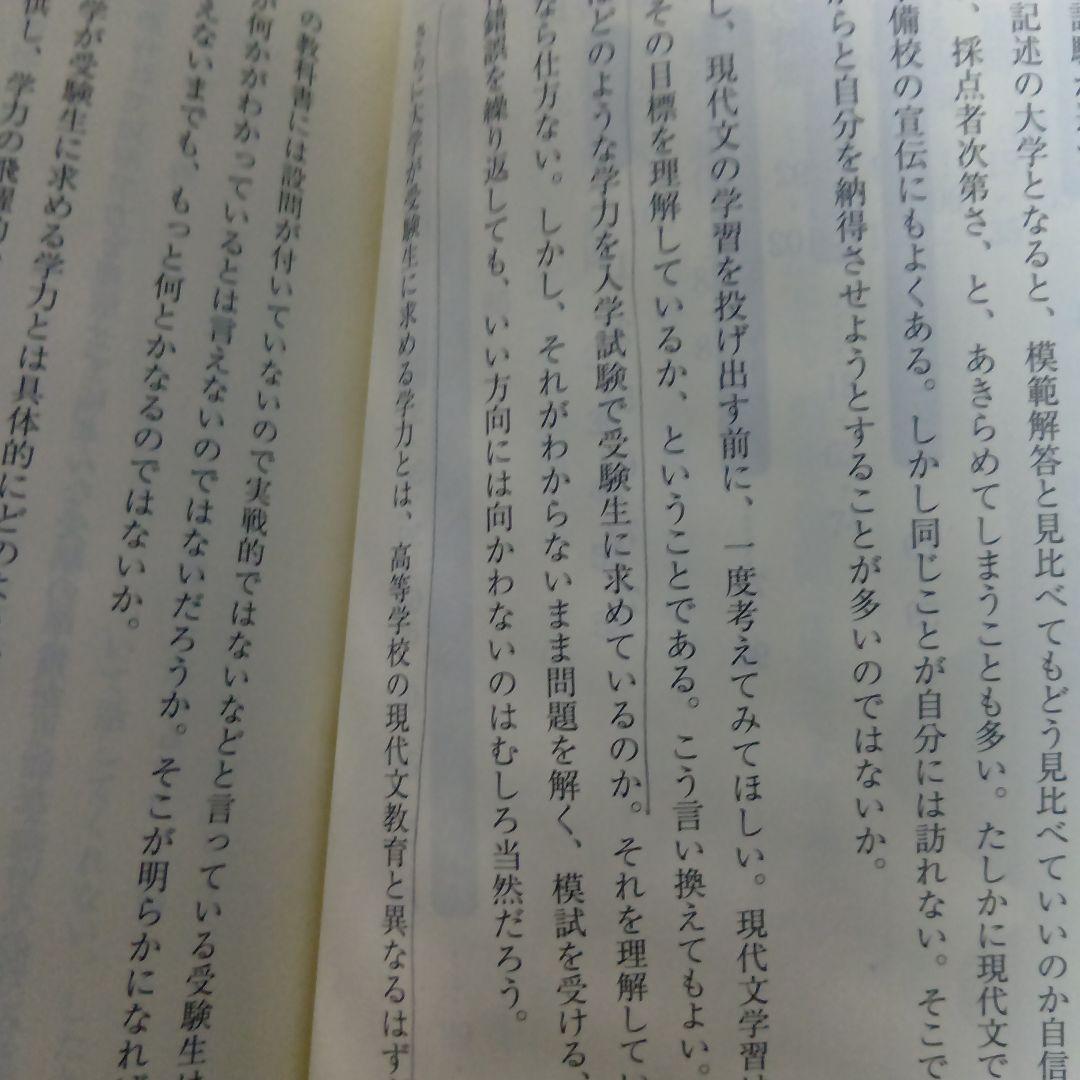 記述の大学となると、模範解答と見比べてもどう見比べていいのか自信
、採点者次第さ、と、あきらめてしまうことも多い。たしかに現代文で
備校の宣伝にもよくある。しかし同じことが自分には訪れない。そこで
らと自分を納得させようとすることが多いのではないか。
し、現代文の学習を投げ出す前に、一度考えてみてほしい。現代文学習
その目標を理解しているか、ということである。こう言い換えてもよい。
どのような学力を入学試験で受験生に求めているのか。それを理解してい
なら仕方ない。しかし、それがわからないまま問題を解く、模試を受ける、
錯誤を繰り返しても、いい方向には向かわないのはむしろ当然だろう。
に大学が受験生に求める学力とは、高等学校の現代文教育と異なるはず
の教科書には設問が付いていないので実戦的ではないなどと言っている受験生は
が何かがわかっているとは言えないのではないだろうか。そこが明らかになれ
えないまでも、もっと何とかなるのではないか。
学が受験生に求める学力とは具体的にどの
供し、学力の飛躍的